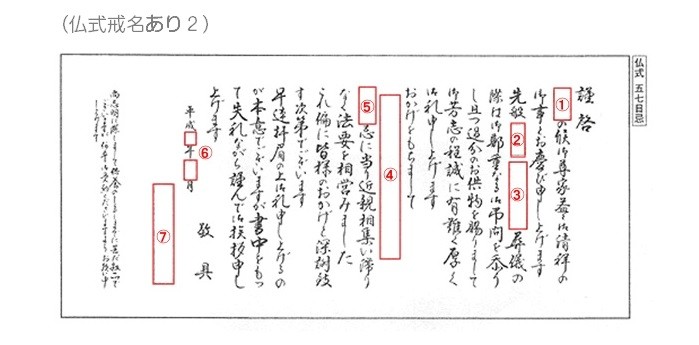 (仏式戒名あり2)
仏式 五七日忌
謹啓
①の候御尊家益々御清祥の
御事とお慶び申し上げます
先般 ② ③ 葬儀の
際は御鄭重なる御弔問を忝う
し且つ過分のお供物を賜りまして
御芳志の程誠に有難く厚く
御礼申し上げます
おかげをもちまして
④
⑤忌に当り近親相集い滞り
なく法要を相営みました
これ偏に皆様のおかげと深謝致
す次第でございます
早速拝眉の上御礼申し上げるの
が本意でございますが書中をもっ
て失礼ながら謹んで御挨拶申し
上げます
敬具
平成 年 月
⑥
⑦